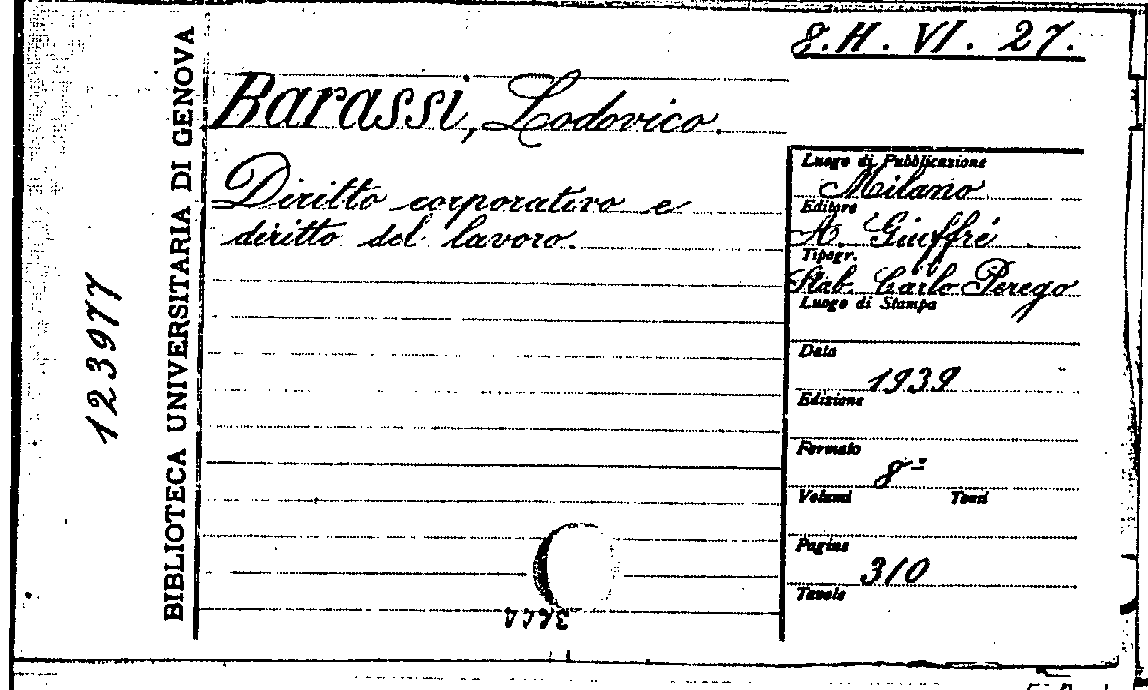 8. H. VI. 27.
BIBLIOTECA UNIVERSITARIA DI GENOVA
123977
Barassi, Lodovico.
Diritto corporativo e
diritto del lavoro.
Luogo di Pubblicazione
Milano
Editore
A. Giuffrè
Tipogr.
Stab. Carlo Perego
Luogo di Stampa
Data
1939
Edizione
Formato
8°
Volumi Tomi
Pagine
310
Tavole